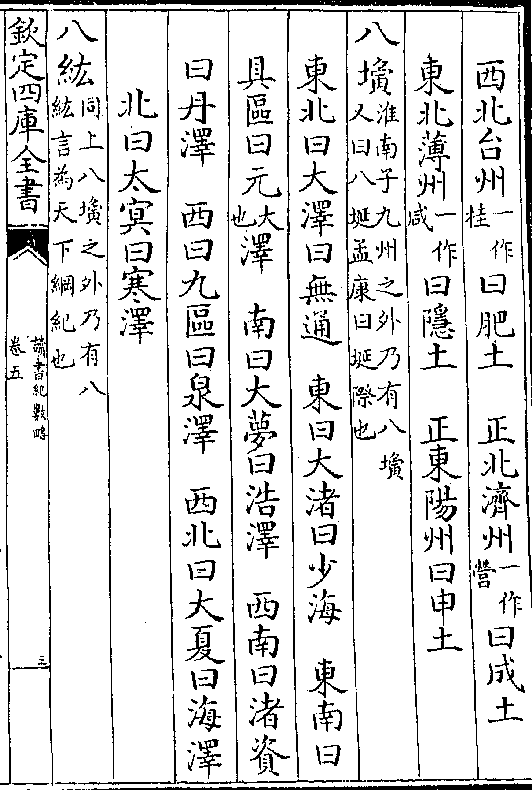 西北台州一作桂曰肥土　正北濟州一作營曰成土
東北薄州一作咸曰隱土　正東陽州曰申土
八㙲淮南子九州之外乃有八㙲又曰八埏孟康曰埏際也
東北曰大澤曰無通　東曰大渚曰少海　東南曰
具區曰元大也澤　南曰大夢曰浩澤　西南曰渚資
曰丹澤　西曰九區曰泉澤　西北曰大夏曰海澤
北曰太㝠曰寒澤
八紘同上八㙲之外乃有八紘言為天下綱紀也
欽定四庫全書
讀書紀數略
卷五
三